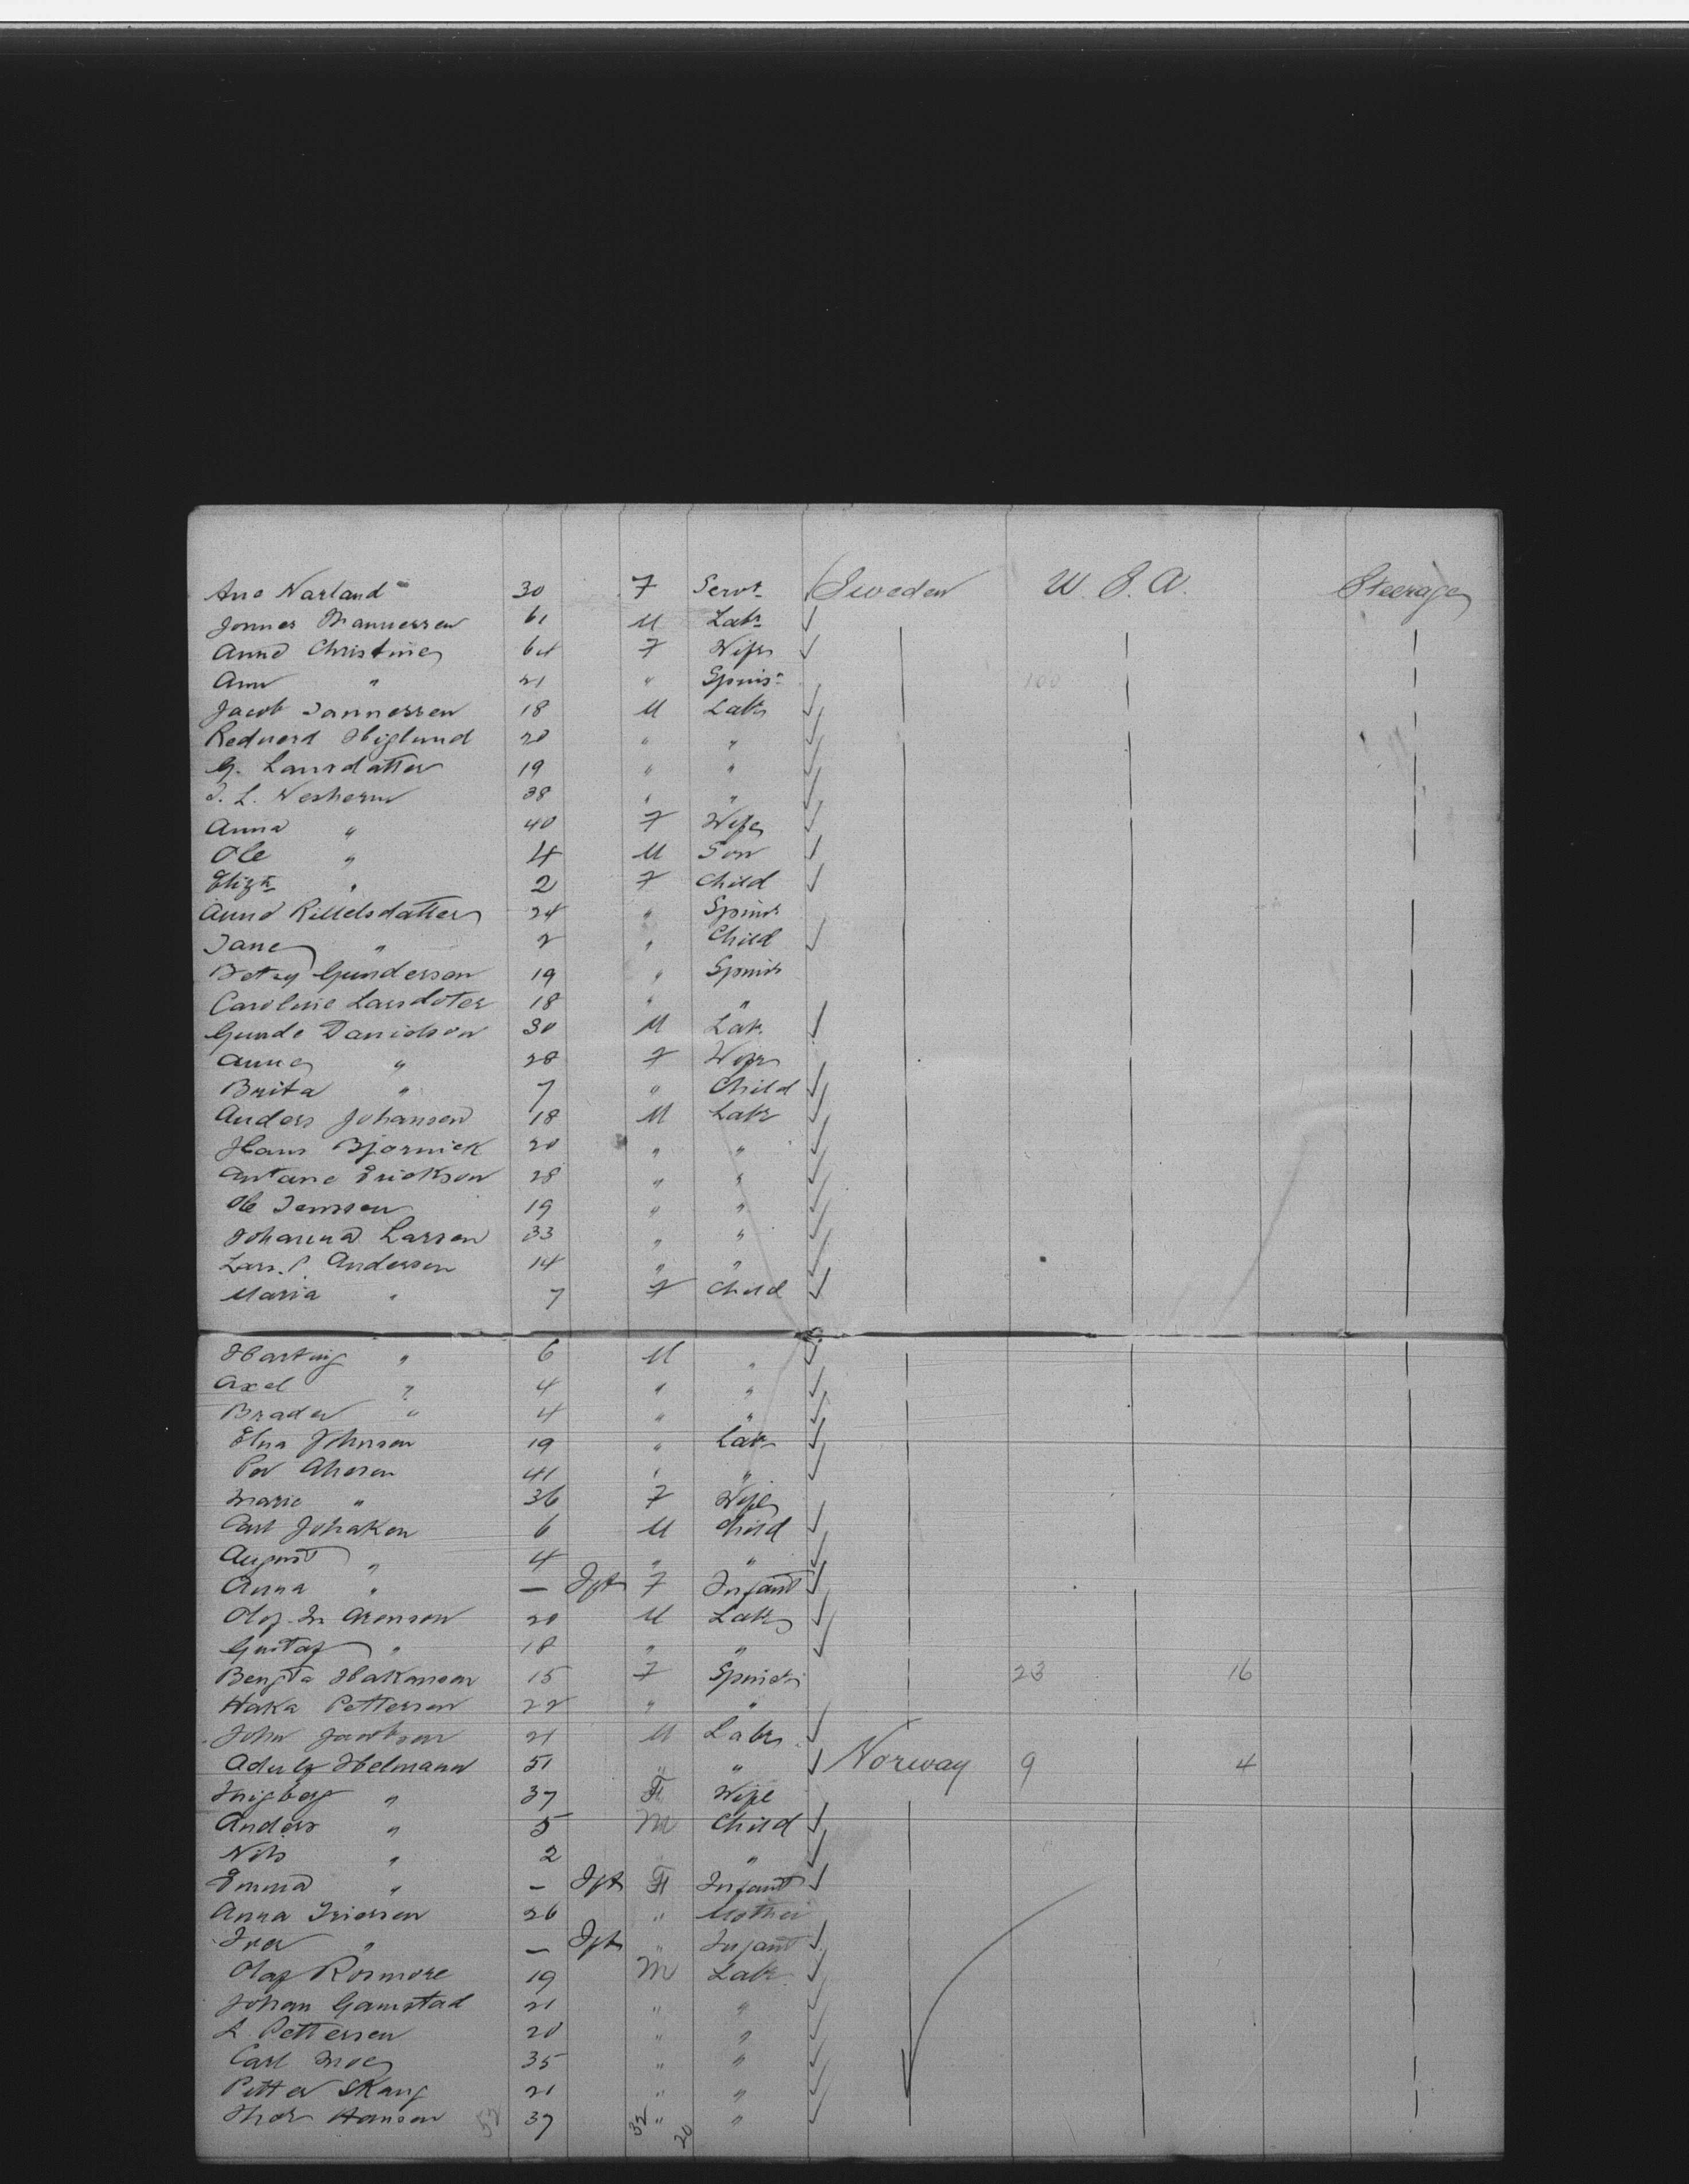 Ane Narland 30 F Servt Sweden U.S.A. Steerage
Jonnes Mannerren 61 M Labr
Anne Christine 64 F Wife
Ann " 21 " Spinsr 100
Jacob Jannerren 18 M Labr
Redverd Higlund 20 " "
G. Larsdatter 19 " "
J. L. Nesherm 38 " "
Anna " 40 F Wife
Ole " 4 M Son
Elizth " 2 F Child
Anne Killelsdatter 24 " Spinsr
Jane " 2 " Child
Betsy Gunderson 19 " Spinsr
Caroline Larsdoter 18 " "
Gunde Danielson 30 M Labr
Anne " 28 F Wife
Brita " 7 " Child
Anders Johansen 18 M Labr
Hans Bjornick 20 " "
Antane Erickson 28 " "
Ole Jenssen 19 " "
Johanna Larsen 33 " "
Lars. P. Anderson 14 " "
Maria " 7 F Child
Harting " 6 M "
Axel " 4 " "
Brader " 4 " "
Elna Johnson 19 " Labr
Per 41 " "
Marie " 36 F Wife
Carl Johakon 6 M Child
August " 4 " "
Anna " — Ift F Infant
Olof Aronson 20 M Labr
Gustaf " 18 " "
Bengta Hakanson 15 F Spinsr 23 16
Haka Petterson 22 " "
John Jacobson 21 M Labr
Helmann 51 " " Norway 9 4
Ingberg " 37 F Wife
Anders " 5 M Child
Nils " 2 "
Emma " — Ift F Infant
Anna Iversen 26 " Mother
Iver " — Ift " Infant
Olaf Rosmore 19 M Labr
Johan Gamstad 21 " "
A Petterson 20 " "
Carl Moe 35 " "
Petter Skang 21 " "
Thor Hanson 52 37 32 " 20 "